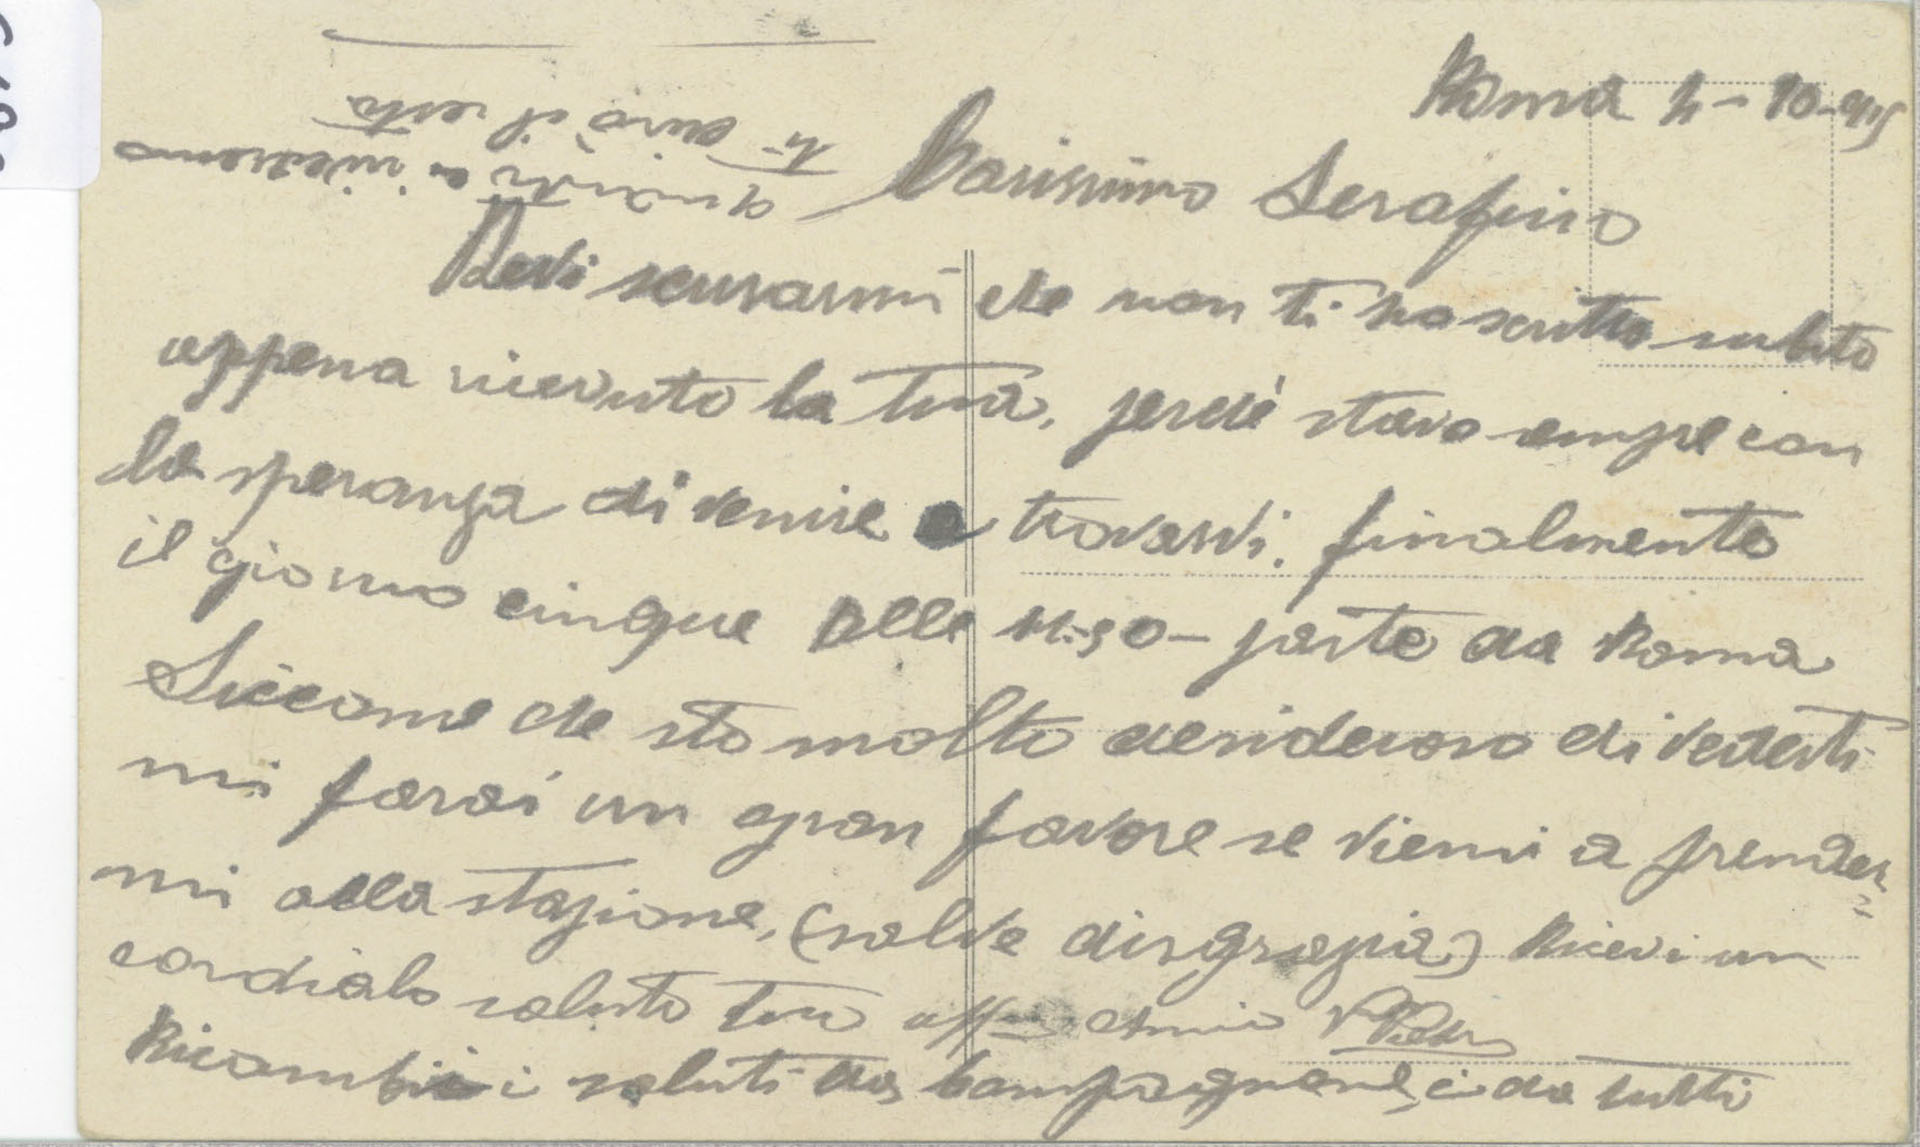 Roma 4-10-915
Carissimo Serafino
Devi scusarmi che non ti ho scritto subito
appena ricevuto la tua, perchè stavo sempre con
la speranza di venire a trovarvi. finalmente
il giorno cinque alle parto da Roma
Siccome che sto molto desideroso di vederti
mi farai un gran favore se vieni a prender=
mi alla stazione, (salve disgrazia) Ricevi un
cordialo saluto tuo aff amico
Ricambio i saluti da e da tutti
quando ci vedremo
ti dirò il resto